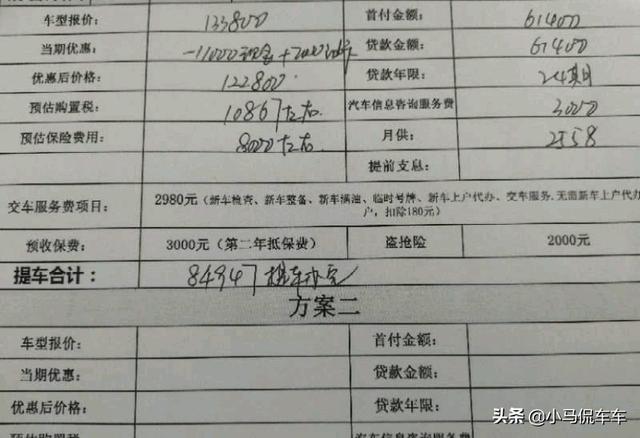 车型报价: 133800 首付金额: 61400
当期优惠: -11000现金+2000油卡 贷款金额: 61400
优惠后价格: 122800 贷款年限: 24期
预估购置税: 10867左右 汽车信息咨询服务费 3000
预估保险费用: 8000左右 月供: 2558
提前支息:
交车服务费项目: 2980元(新车检查、新车整备、新车满油、临时号牌、新车上户代办、交车服务.无需新车上户代办
户,扣除180元)
预收保费: 3000元(第二年抵保费) 盗抢险 2000元
提车合计: 84947提车办完
方案二
车型报价: 首付金额:
当期优惠: 贷款金额:
优惠后价格: 贷款年限:
预估购置税 汽车信息咨询服务费
头条 @小马侃车车